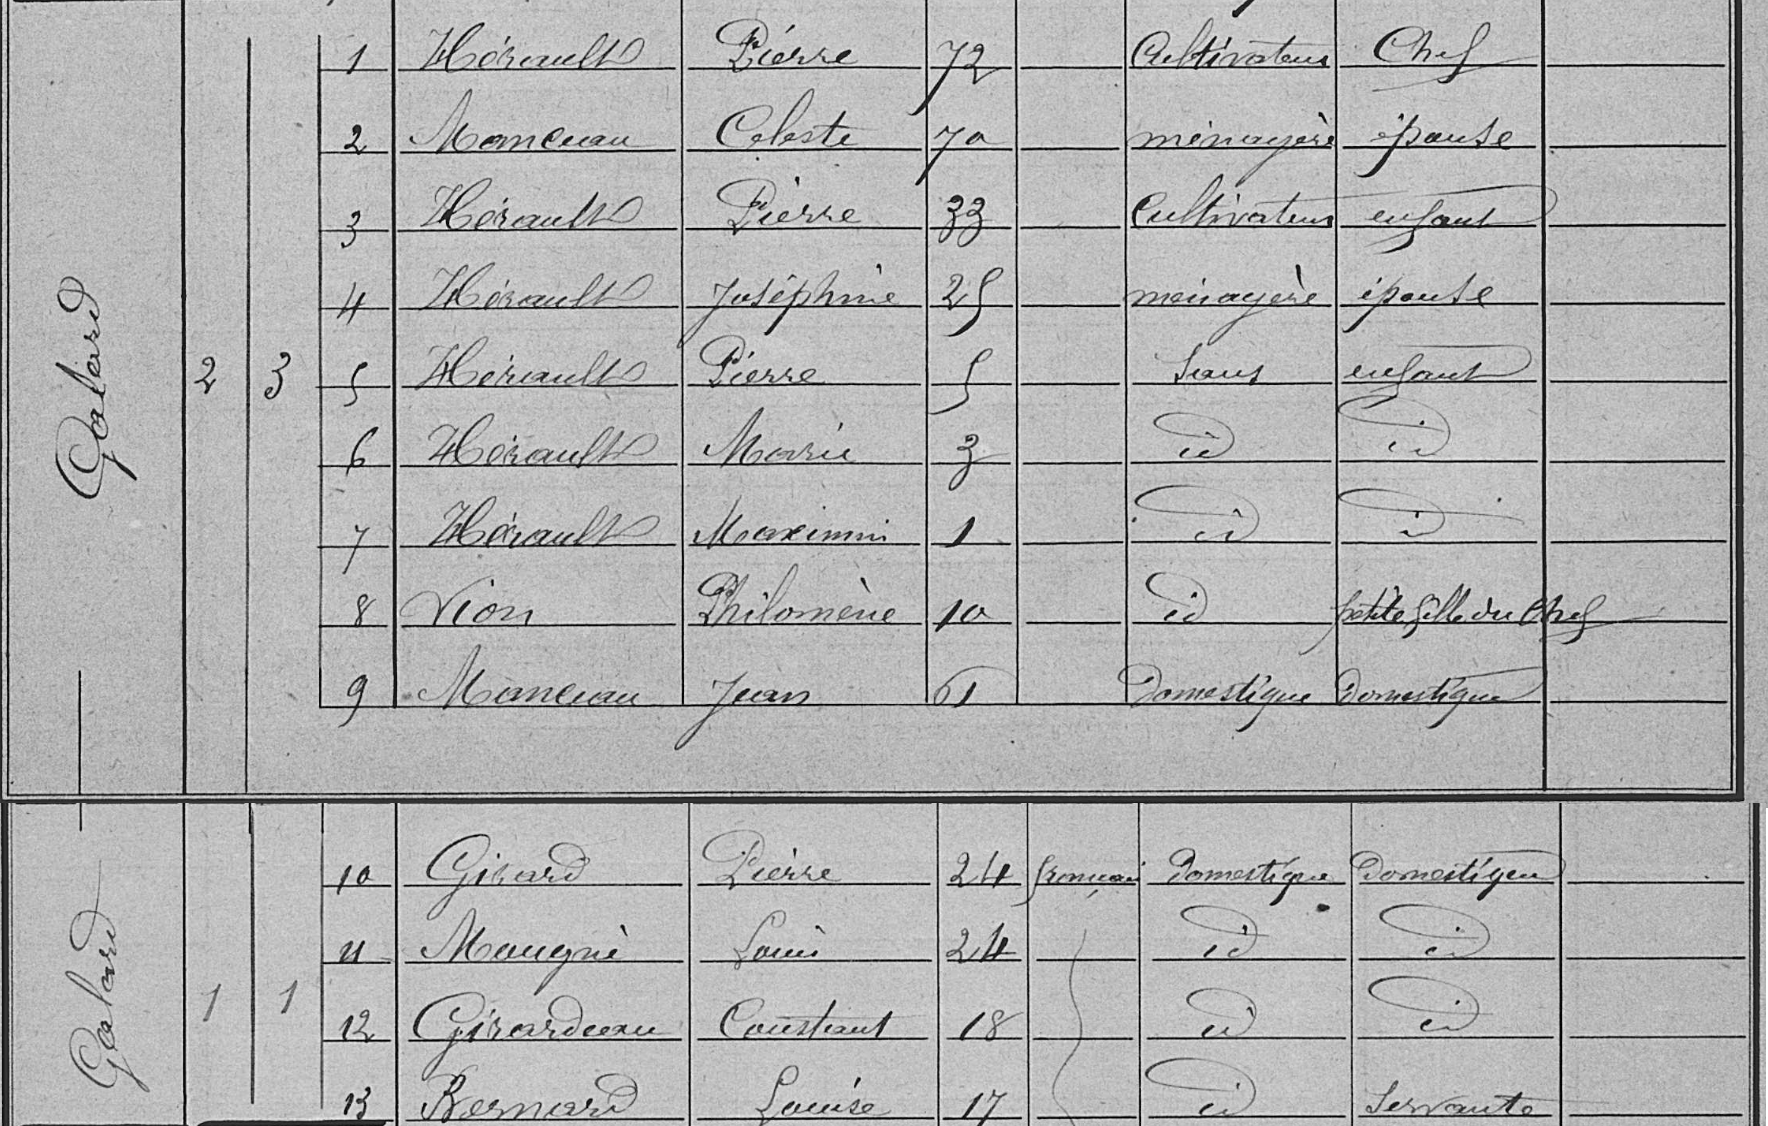 1 Hérault Pierre 72 Cultivateur Chef
2 Manceau Celeste 70 ménagère épouse
3 Hérault Pierre 33 Cultivateur enfant
4 Hérault Joséphine 25 ménagère épouse
Galard 2 3 5 Hérault Pierre 5 Sans enfant
6 Hérault Marie 3 id id
7 Hérault Maximin 1 id id
8 Vion Philomène 10 id petite fille du Chef
9 Manceau Jean 61 Domestique Domestique
10 Girard Pierre 24 français Domestique Domestique
11 Maugné Louis 24 id id
Galard 1 1 12 Girardeau Constant 18 id id
13 Bernard Louise 17 id Servante